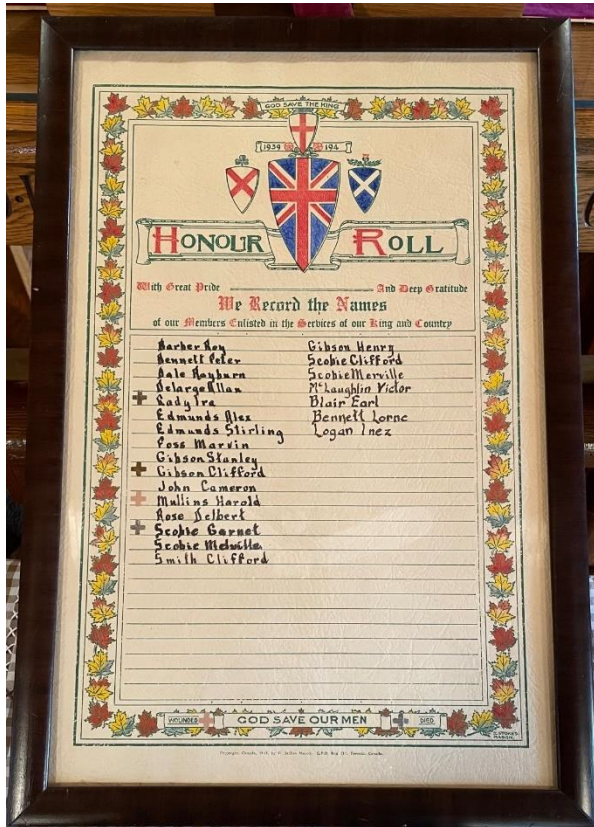 GOD SAVE THE KING
1939 194
HONOUR ROLL
With Great Pride And Deep Gratitude
We Record the Names
of our Members Enlisted in the Services of our King and Country
Barber Roy
Bennett Peter
Dale Rayburn
Delarge Allan
Eady Ira
Edmunds Alex
Edmunds Stirling
Foss Marvin
Gibson Stanley
Gibson Clifford
John Cameron
Mullins Harold
Rose Delbert
Scobie Garnet
Scobie Melville
Smith Clifford
Gibson Henry
Scobie Clifford
Scobie Merville
McLaughlin Victor
Blair Earl
Bennett Lorne
Logan Inez
WOUNDED GOD SAVE OUR MEN DIED
Copyright, Canada, by Toronto, Canada.